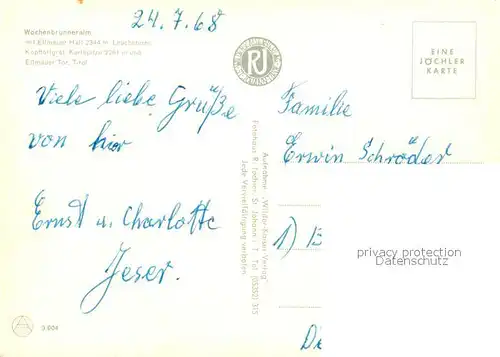 24.7.68
Wochenbrunneralm
mit Ellmauer Halt 2344 m, Leuchsturm,
Kopftörlgrat, Karlspitze 2281 m und
Ellmauer Tor, Tirol
Viele liebe Grüße
von hier
Ernst u. Charlotte
Jeser.
3.604
RJ
Aufnahme: "Wilder-Kaiser-Verlag"
Fotohaus R. Jöchler, St. Johann i. T., Tel. (05352) 315
Jede Vervielfältigung verboten
EINE
JÖCHLER
KARTE
Familie
Erwin Schröder
1)
privacy protection
Datenschutz